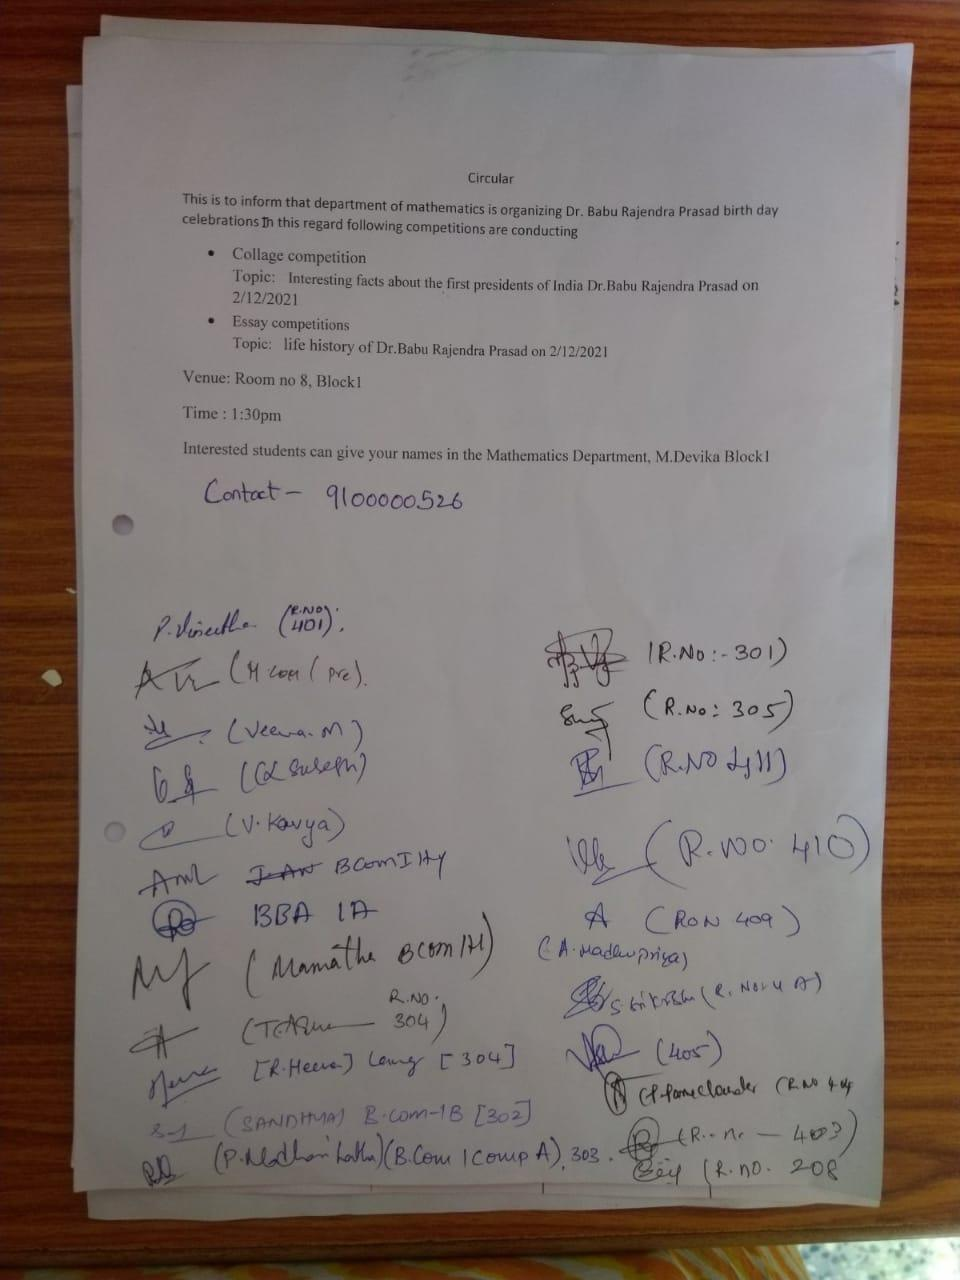 Circular
This is to inform that department of mathematics is organizing Dr. Babu Rajendra Prasad birth day
celebrations In this regard following competitions are conducting
• Collage competition
Topic: Interesting facts about the first presidents of India Dr.Babu Rajendra Prasad on
2/12/2021
• Essay competitions
Topic: life history of Dr.Babu Rajendra Prasad on 2/12/2021
Venue: Room no 8, Block1
Time : 1:30pm
Interested students can give your names in the Mathematics Department, M.Devika Block1
Contact - 9100000526
(R.NO 401).
(M com (pre).
(Veena.M)
(V. Kavya)
BCOM
BBA 1A
(Mamatha BCOM
R.NO.
304)
[304]
(SANDHYA) B.com-1B [302]
(B.Com 1 Comp A), 303.
(R.No:-301)
(R.No: 305)
(R.NO 411)
(R.NO. 410)
A (RON 409)
(A.Madhupriya)
(405)
(R.no
403)
(R.no. 208